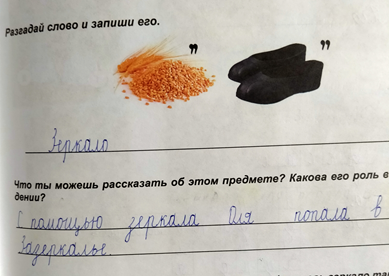 Разгадай слово и запиши его.
” ”
Зеркало
Что ты можешь рассказать об этом предмете? Какова его роль в
дении?
С помощью зеркала Оля попала в
Зазеркалье.